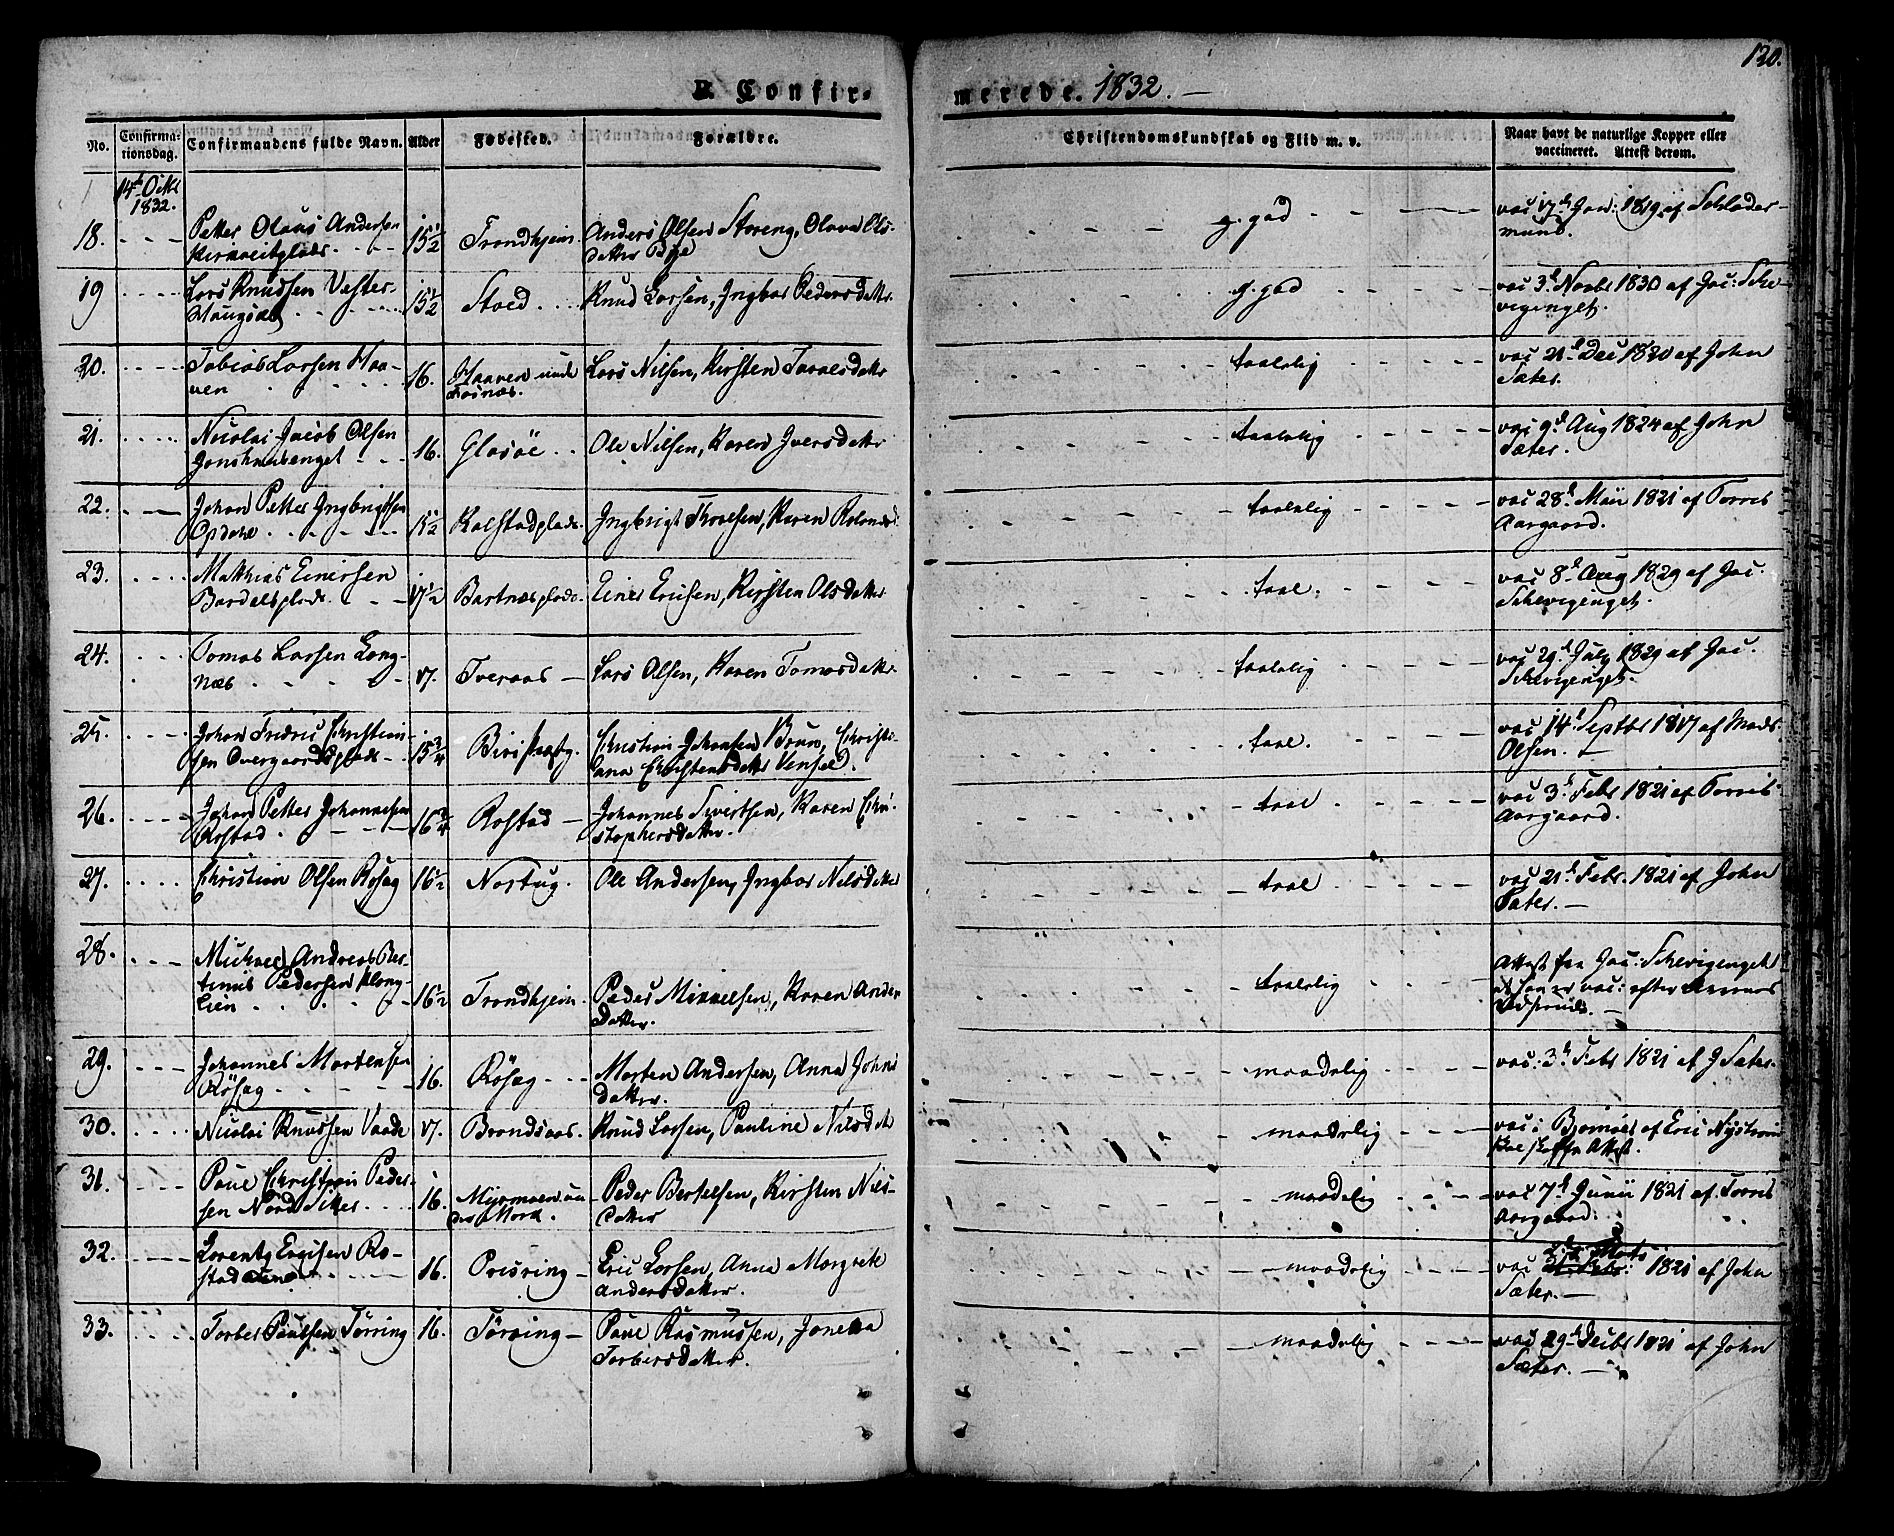 130.
D. Confir-
merede. 1832. —
No.
Confirma-
tionsdag.
Confirmandens fulde Navn.
Alder
Fødested.
Forældre.
Christendomskundskab og Flid m. v.
Naar havt de naturlige Kopper eller
vaccineret. Attest derom.
14d Octr
1832.
18. Petter Olaus Andersen 15½ Trondhjem Anders Olsen Storeng, Olava Ols-
datter Bye
g. god
vac 17d Jan: 1819 af Schlader-
mund.
19 Lars Knudsen Vester-
Haugdal 15½ Stoed Knud Larsen, Ingbor Pedersdatter
g. god
vac 3d Novbr 1830 af Jac: Sche-
vigenget.
20. Tobias Larsen Haa-
ven 16. Haaven unde
Fosnæs. Lars Nilsen, Kirsten Toralsdattr
taalelig
vac 21d Dec 1820 af John
Sæter.
21. Nicolai Jacob Olsen 16. Gladsöe Ole Nilsen, Karen Iversdattr
taalelig
vac 9d Aug 1824 af John
Sæter.
22. Johan Petter Ingbrigtsen
Opdahl 15½ Kalstadplads Ingbrigt Thoresen, Karen Rolandsd
taalelig
vac 28d Maii 1821 af Torris
Aargaard.
23. Mathias Einersen
Bardalsplads 17½ Bartnæsplads Einer Ericsen, Kirsten Olsdatter
taal.
vac 8d Aug 1829 af Jac.
Schevigenget.
24. Tomas Larsen Lang-
næs 17. Tveraas — Lars Olsen, Karen Tomasdatter
taalelig
vac 29d July 1829 af Jac.
Schevigenget.
25. Johan Fridric Christian-
sen Overgaardsplads 15¾ Christian Johansen Brun, Christi-
ana Christensdatter Vensel.
taal.
vac 14d Septbr 1817 af Mads
Olsen. —
26. Johan Petter Johannesen
Rostad 16¾ Rostad — Johannes Sivertsen, Karen Chri-
stophersdatter.
taal
vac 3d Febr 1821 af Torris
Aargaard.
27. Christian Olsen Rösag 16½ Nortug. Ole Andersen, Ingbor Nilsdatter
taal
vac 21d Febr. 1821 af John
Sæter. —
28. Michael Andreas Ber-
tinus Pedersen Klong-
lien 16½ Trondhjem Peder Mikkelsen, Karen Anders
datter.
taalelig
Attest fra Jac: Schevigenget
at han er vac: efter
29. Johannes Mortensen
Rösag 16. Rösag Morten Andersen, Anna Johns
datter.
maadelig
vac: 3d Febr 1821 af J Sæter.
30. Nicolai Knudsen Vaade 17. Brandsaas. Knud Larsen, Pauline Nilsdatter
maadelig
vac: af Eric Nystrom
Attest.
31. Paul Christian Peder-
sen Nord Sikes 16. Myrmoen un-
der Mork. Peder Bertelsen, Kirsten Nils-
datter
maadelig
vac 7d Junii 1821 af Torris
Aargaard.
32. Lorentz Ericsen Ro-
stad 16. Prisring — Eric Larsen, Anna Margrete
Andersdatter.
maadelig
vac 2d Marts 1821 af John
Sæter. —
33. Torber Paulsen Törring 16. Törring — Paul Rasmussen, Jonetta
Torbersdatter.
maadelig
vac 29d Decbr 1821 af John
Sæter. —